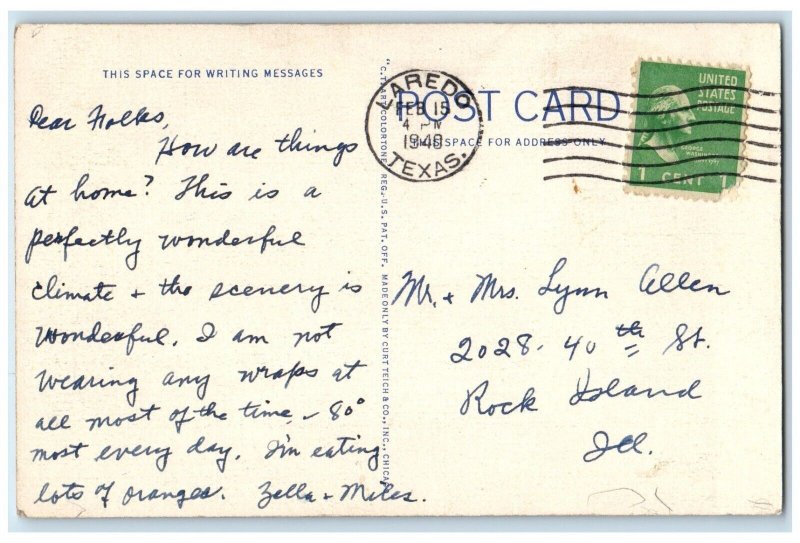 THIS SPACE FOR WRITING MESSAGES
Dear Folks,
How are things
at home? This is a
perfectly wonderful
climate + the scenery is
wonderful. I am not
wearing any wraps at
all most of the time, - 80°
most every day. I'm eating
lots of oranges. Zella + Miles.
"C.T. ART-COLORTONE" REG. U.S. PAT. OFF. MADE ONLY BY CURT TEICH & CO., INC., CHICAGO
POST CARD
THIS SPACE FOR ADDRESS ONLY
LAREDO
FEB 15
4 PM
1940
TEXAS.
UNITED
STATES
POSTAGE
GEORGE
1 CENT 1
Mr. + Mrs. Lynn Allen
2028- 40th St.
Rock Island
Ill.